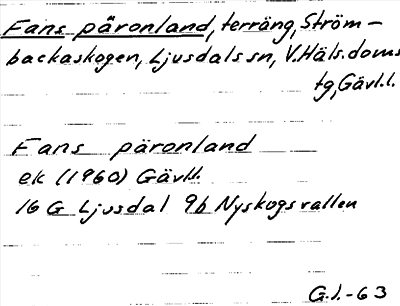 Fans päronland, terräng, Ström-
backaskogen, Ljusdals sn, V.Häls.doms
tg, Gävl.l.
Fans päronland
ek (1960) Gävll.
16 G Ljusdal 9b Nyskogsvallen
G.J.-63